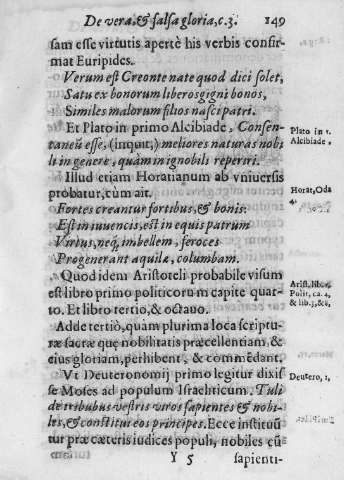 De vera, & falsa gloria, c. 3. 149
sam esse virtutis apertè his verbis confir-
mat Euripides.
Verum est Creonte nate quod dici solet,
Satu ex bonorum liberos gigni bonos,
Similes malorum filios nasci patri.
Et Plato in primo Alcibiade, Consen-
taneũ esse, (inquit,) meliores naturas nobi
li in genere, quàm in ignobili reperiri.
Plato in 1.
Alcibiade,
Illud etiam Horatianum ab vniuersis
probatur, cùm ait.
Horat, Oda
4.
Fortes creantur fortibus, & bonis:
Est in iuuencis, est in equis patrum
Virtus, neq; imbellem, feroces
Progenerant aquilæ, columbam.
Quod idem Aristoteli probabile visum
est libro primo politicorum capite quar-
to. Et libro tertio, & octauo.
Arist, lib. 1.
Polit, ca. 4,
& lib. 3, & 8,
Adde tertiò, quàm plurima loca scriptu-
ræ sacræ quæ nobilitatis præcellentiam, &
eius gloriam, perhibent, & commẽdant.
Vt Deuteronomij primo legitur dixis
se Moses ad populum Israhelticum. Tuli
Deutero, 1,
de tribubus vestris viros sapientes & nobi-
les, & constitui eos principes. Ecce instituũ
tur præ cæteris iudices populi, nobiles cũ
Y 5 sapienti-